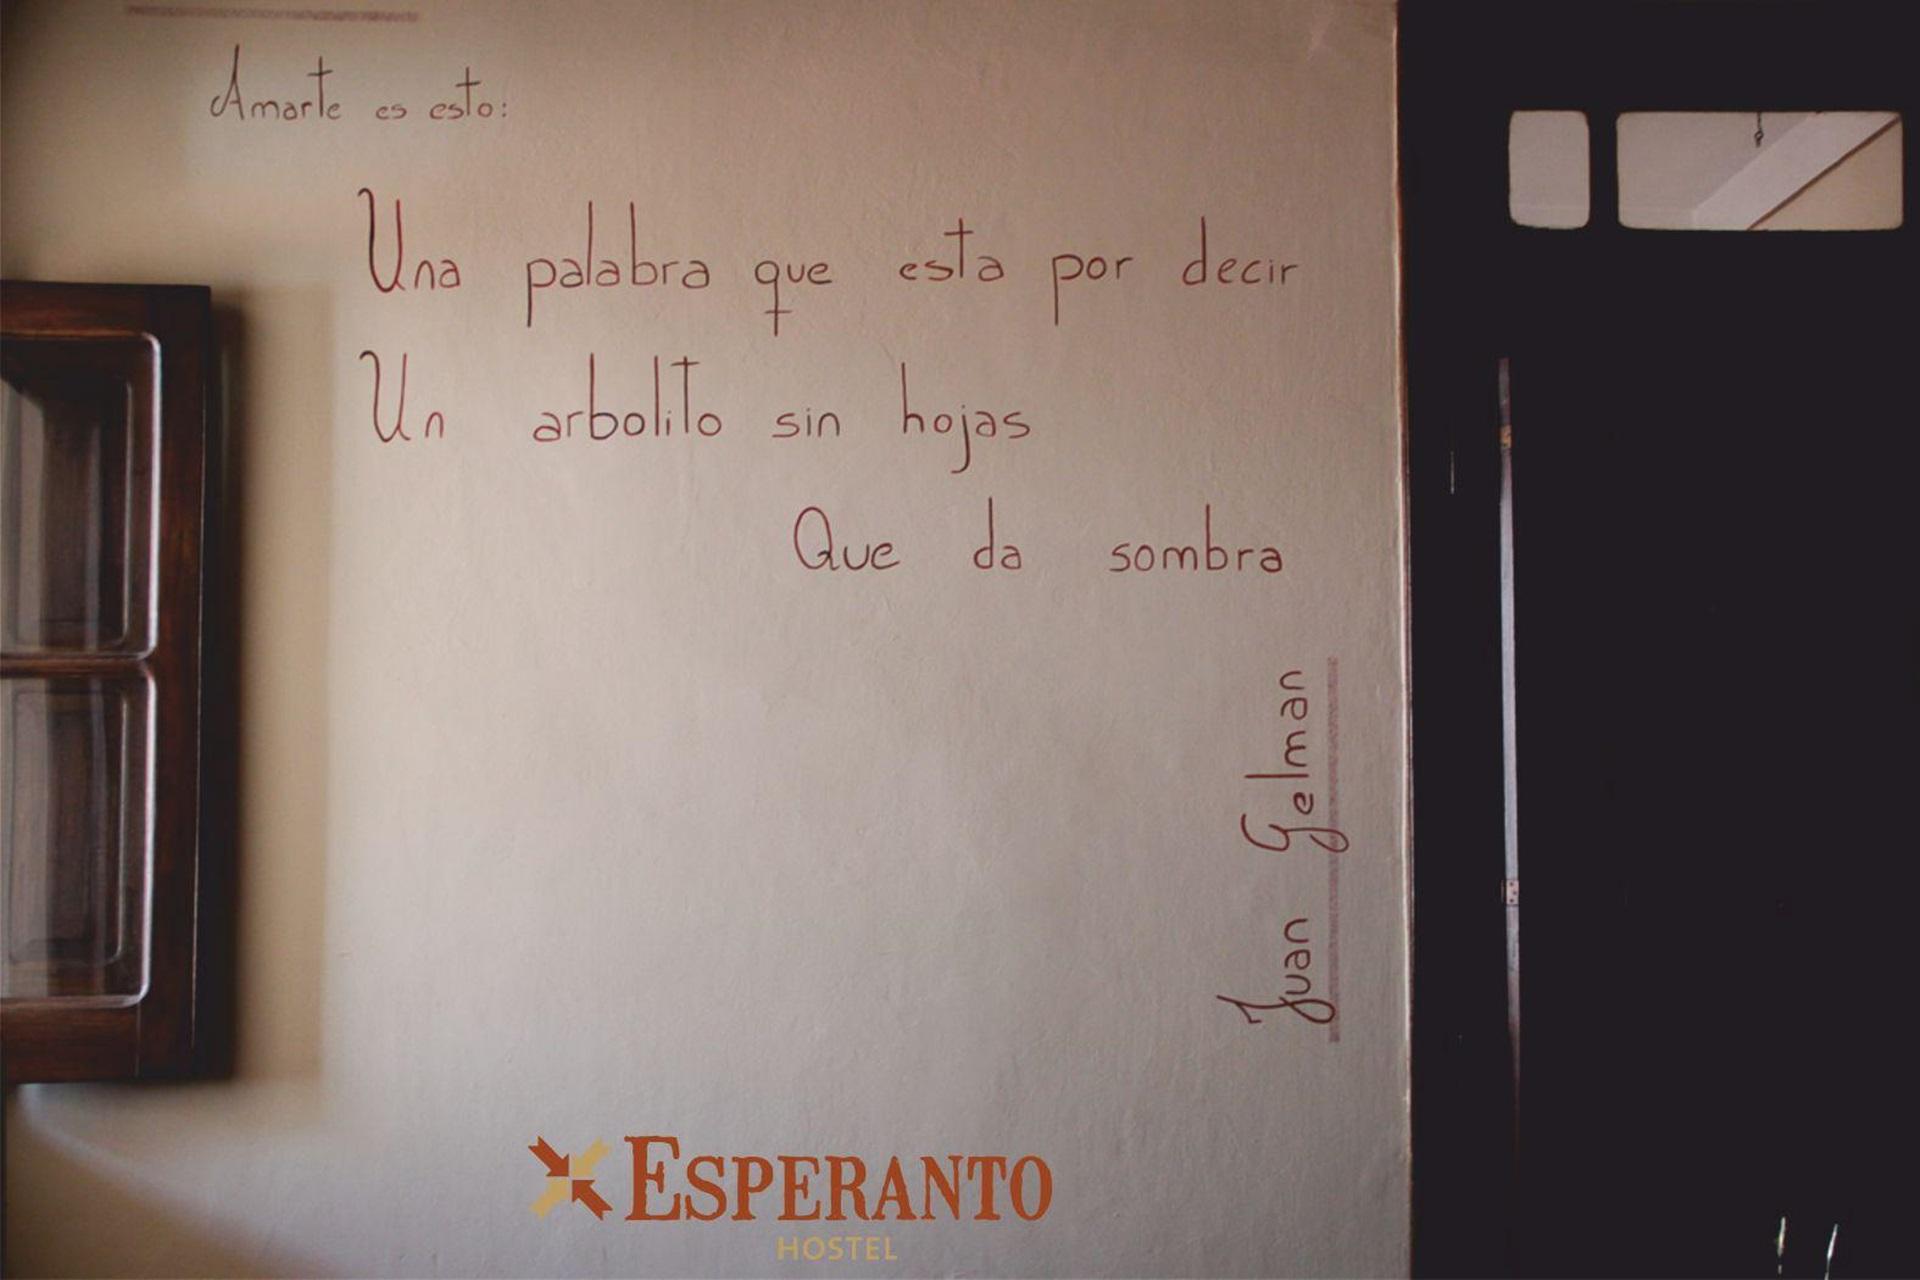 Amarte es esto:
Una palabra que esta por decir
Un arbolito sin hojas
Que da sombra
Juan Gelman
ESPERANTO
HOSTEL